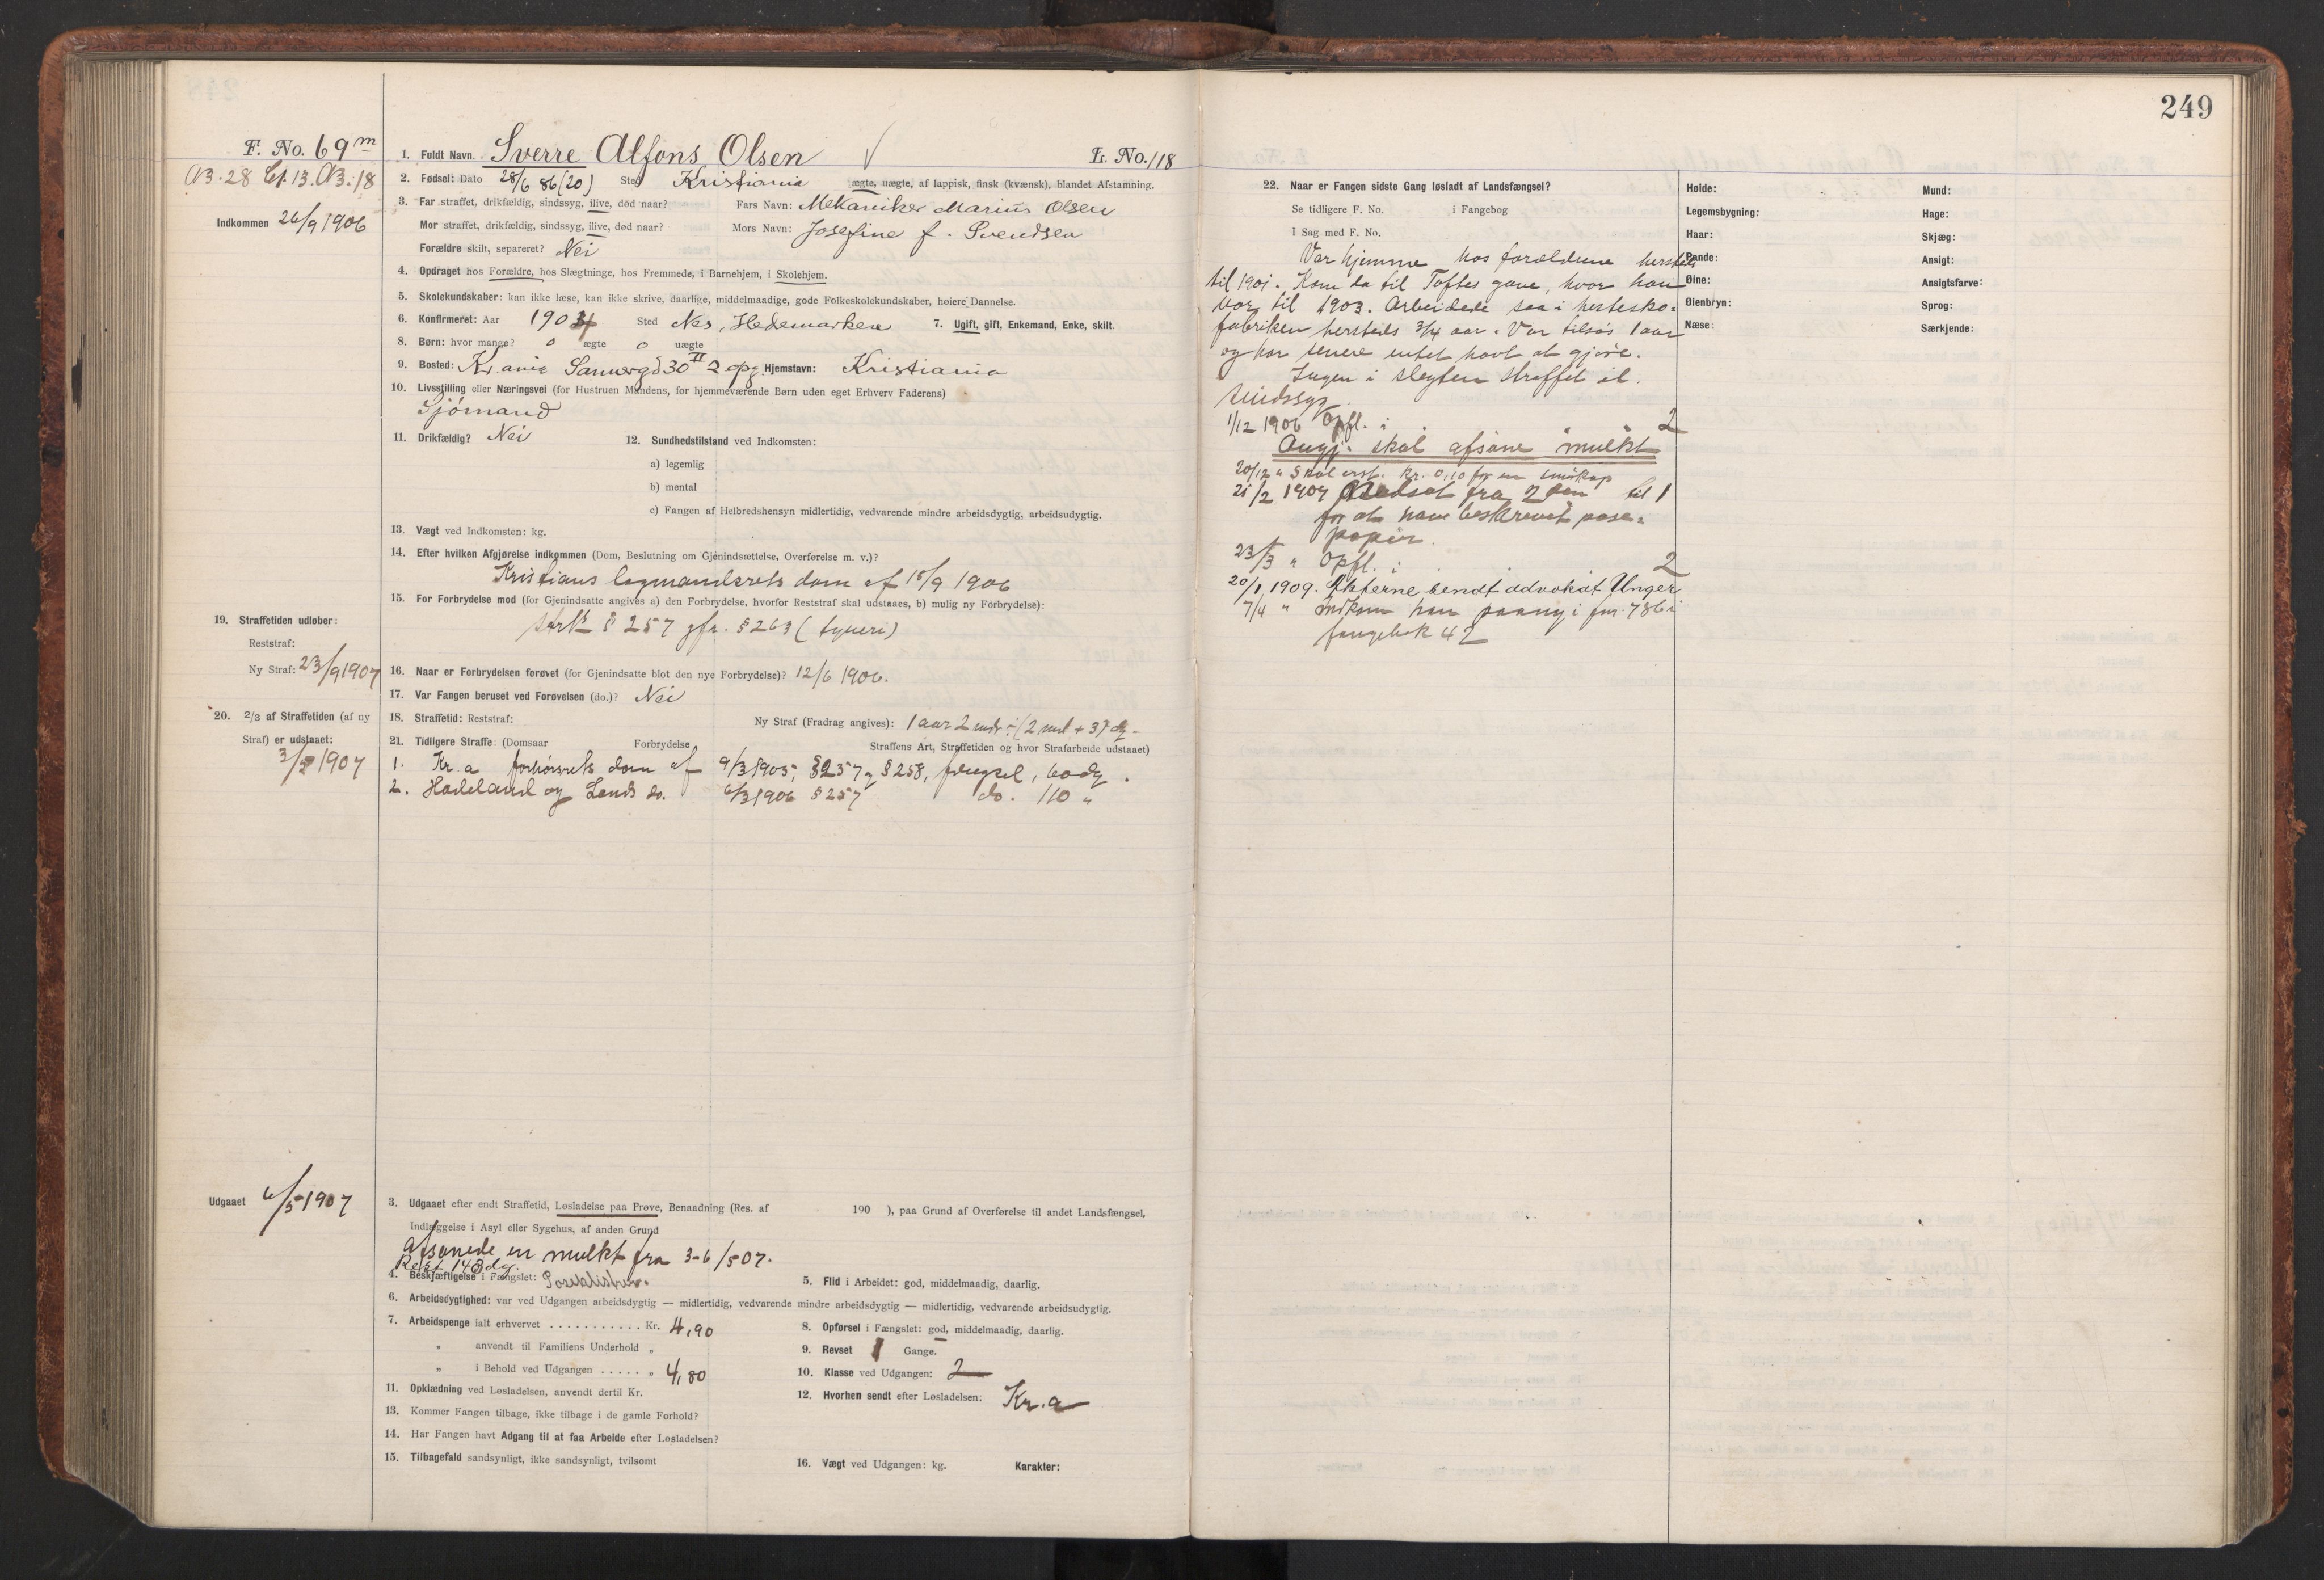 249
F. No. 69 m
N3. 28 Ct. 13. N3. 18
Indkommen 26/9 1906
1. Fuldt Navn. Sverre Alfons Olsen
L. No. 118
2. Fødsel: Dato 28/6 86 (20) Sted Kristiania ægte, uægte, af lappisk, finsk (kvænsk), blandet Afstamning.
3. Far straffet, drikfældig, sindssyg, ilive, død naar? Fars Navn: Mekaniker Marius Olsen
Mor straffet, drikfældig, sindssyg, ilive, død naar? Mors Navn: Josefine f. Svendsen
Forældre skilt, separeret? Nei
4. Opdraget hos Forældre, hos Slægtninge, hos Fremmede, i Barnehjem, i Skolehjem.
5. Skolekundskaber: kan ikke læse, kan ikke skrive, daarlige, middelmaadige, gode Folkeskolekundskaber, høiere Dannelse.
6. Konfirmeret: Aar 1904 Sted Nes, Hedemarken 7. Ugift, gift, Enkemand, Enke, skilt.
8. Børn: hvor mange? 0 ægte 0 uægte
9. Bosted: Kr.ania Sannergd 30 II 2 opg. Hjemstavn: Kristiania
10. Livsstilling eller Næringsvei (for Hustruen Mandens, for hjemmeværende Børn uden eget Erhverv Faderens)
Sjømand
11. Drikfældig? Nei 12. Sundhedstilstand ved Indkomsten:
a) legemlig
b) mental
c) Fangen af Helbredshensyn midlertidig, vedvarende mindre arbeidsdygtig, arbeidsudygtig.
13. Vægt ved Indkomsten: kg.
14. Efter hvilken Afgjørelse indkommen (Dom, Beslutning om Gjenindsættelse, Overførelse m. v.)?
Kristians lagmandsrets dom af 18/9 1906
15. For Forbrydelse mod (for Gjenindsatte angives a) den Forbrydelse, hvorfor Reststraf skal udstaaes, b) mulig ny Forbrydelse):
strfl § 257 jfr. § 263 (tyveri)
19. Straffetiden udløber:
Reststraf:
Ny Straf: 23/9 1907
16. Naar er Forbrydelsen forøvet (for Gjenindsatte blot den nye Forbrydelse)? 12/6 1906.
17. Var Fangen beruset ved Forøvelsen (do.)? Nei
20. 2/3 af Straffetiden (af ny
Straf) er udstaaet:
3/5 1907
18. Straffetid: Reststraf: Ny Straf (Fradrag angives): 1 aar 2 mdr ÷ (2 md + 3) dg
21. Tidligere Straffe: (Domsaar Forbrydelse Straffens Art, Straffetiden og hvor Strafarbeide udstaaet)
1. Kr.a forhørsrets dom af 9/3 1905, § 257 og § 258, fængsel, 60 dg.
2. Hadeland og Lands do. 6/3 1906 § 257 do. 110 "
Udgaaet 6/5 1907
3. Udgaaet efter endt Straffetid, Løsladelse paa Prøve, Benaadning (Res. af 190 ), paa Grund af Overførelse til andet Landsfængsel,
Indlæggelse i Asyl eller Sygehus, af anden Grund
Afsonede en mulkt fra 3-6/5 07.
Rest 143 dg.
4. Beskjæftigelse i Fængslet: 5. Flid i Arbeidet: god, middelmaadig, daarlig.
6. Arbeidsdygtighed: var ved Udgangen arbeidsdygtig — midlertidig, vedvarende mindre arbeidsdygtig — midlertidig, vedvarende arbeidsudygtig.
7. Arbeidspenge ialt erhvervet . . . . . . . . . . . Kr. 4,90 8. Opførsel i Fængslet: god, middelmaadig, daarlig.
" anvendt til Familiens Underhold " 9. Revset 1 Gange.
" i Behold ved Udgangen . . . . . " 4,80 10. Klasse ved Udgangen: 2
11. Opklædning ved Løsladelsen, anvendt dertil Kr. 12. Hvorhen sendt efter Løsladelsen: Kr.a
13. Kommer Fangen tilbage, ikke tilbage i de gamle Forhold?
14. Har Fangen havt Adgang til at faa Arbeide efter Løsladelsen?
15. Tilbagefald sandsynligt, ikke sandsynligt, tvilsomt 16. Vægt ved Udgangen: kg. Karakter:
22. Naar er Fangen sidste Gang løsladt af Landsfængsel?
Se tidligere F. No. i Fangebog
I Sag med F. No.
Var hjemme hos forældrene hersteds
til 1901. Kom da til Toftes gave, hvor han
var til 1903. Arbeidede saa i hestesko-
fabriken hersteds 3/4 aar. Var tilsøs 1 aar
og har senere intet havt at gjøre.
Ingen i slegten straffet el.
sindssyg.
1/12 1906 Opfl. i 2
Angj. skal afsone mulkt
20/12 " Skal erst. kr. 0,10 for en
21/2 1907 Nedsat fra 2 den til 1
for at have beskrevet pose-
papir.
23/3 " Opfl. i 2
20/1 1909. Akterne sendt advokat Unger
7/4 " Indkom han paany i fnr 786 i
fangebok 42
Høide:
Legemsbygning:
Haar:
Pande:
Øine:
Øienbryn:
Næse:
Mund:
Hage:
Skjæg:
Ansigt:
Ansigtsfarve:
Sprog:
Særkjende: